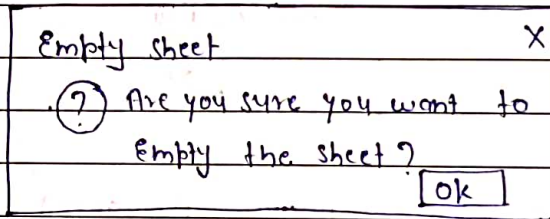 Empty sheet X
? Are you sure you want to
empty the sheet ?
Ok